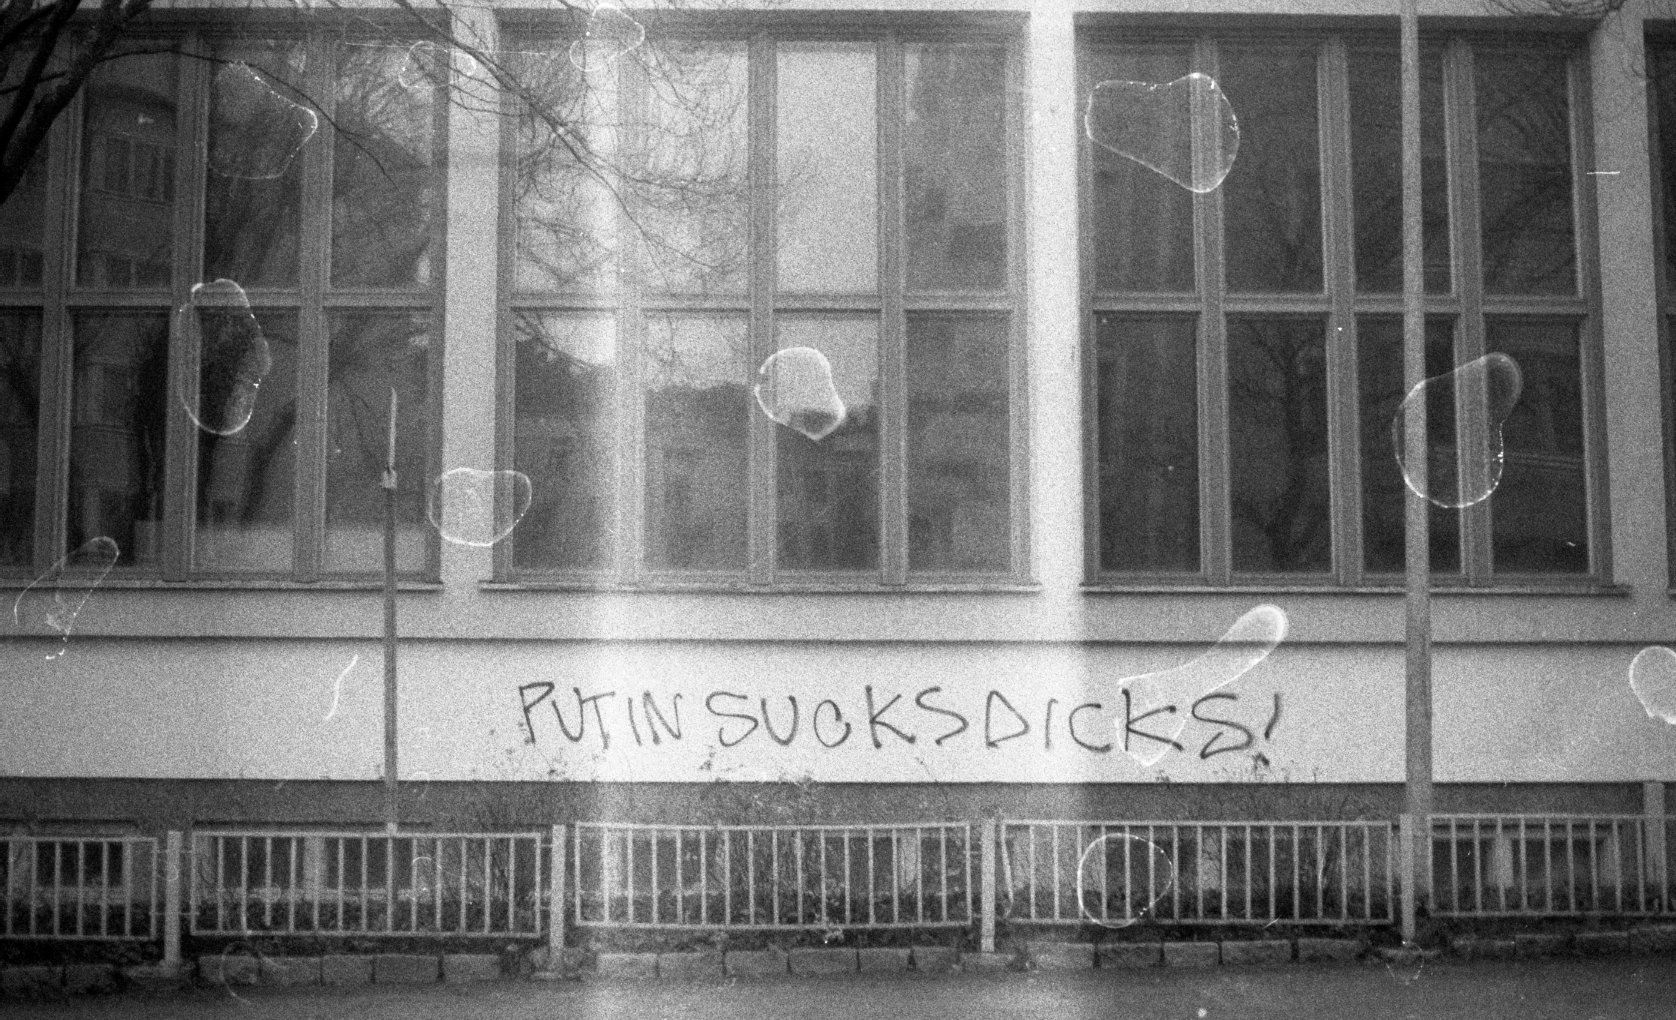 PUTIN SUCKS DICKS!